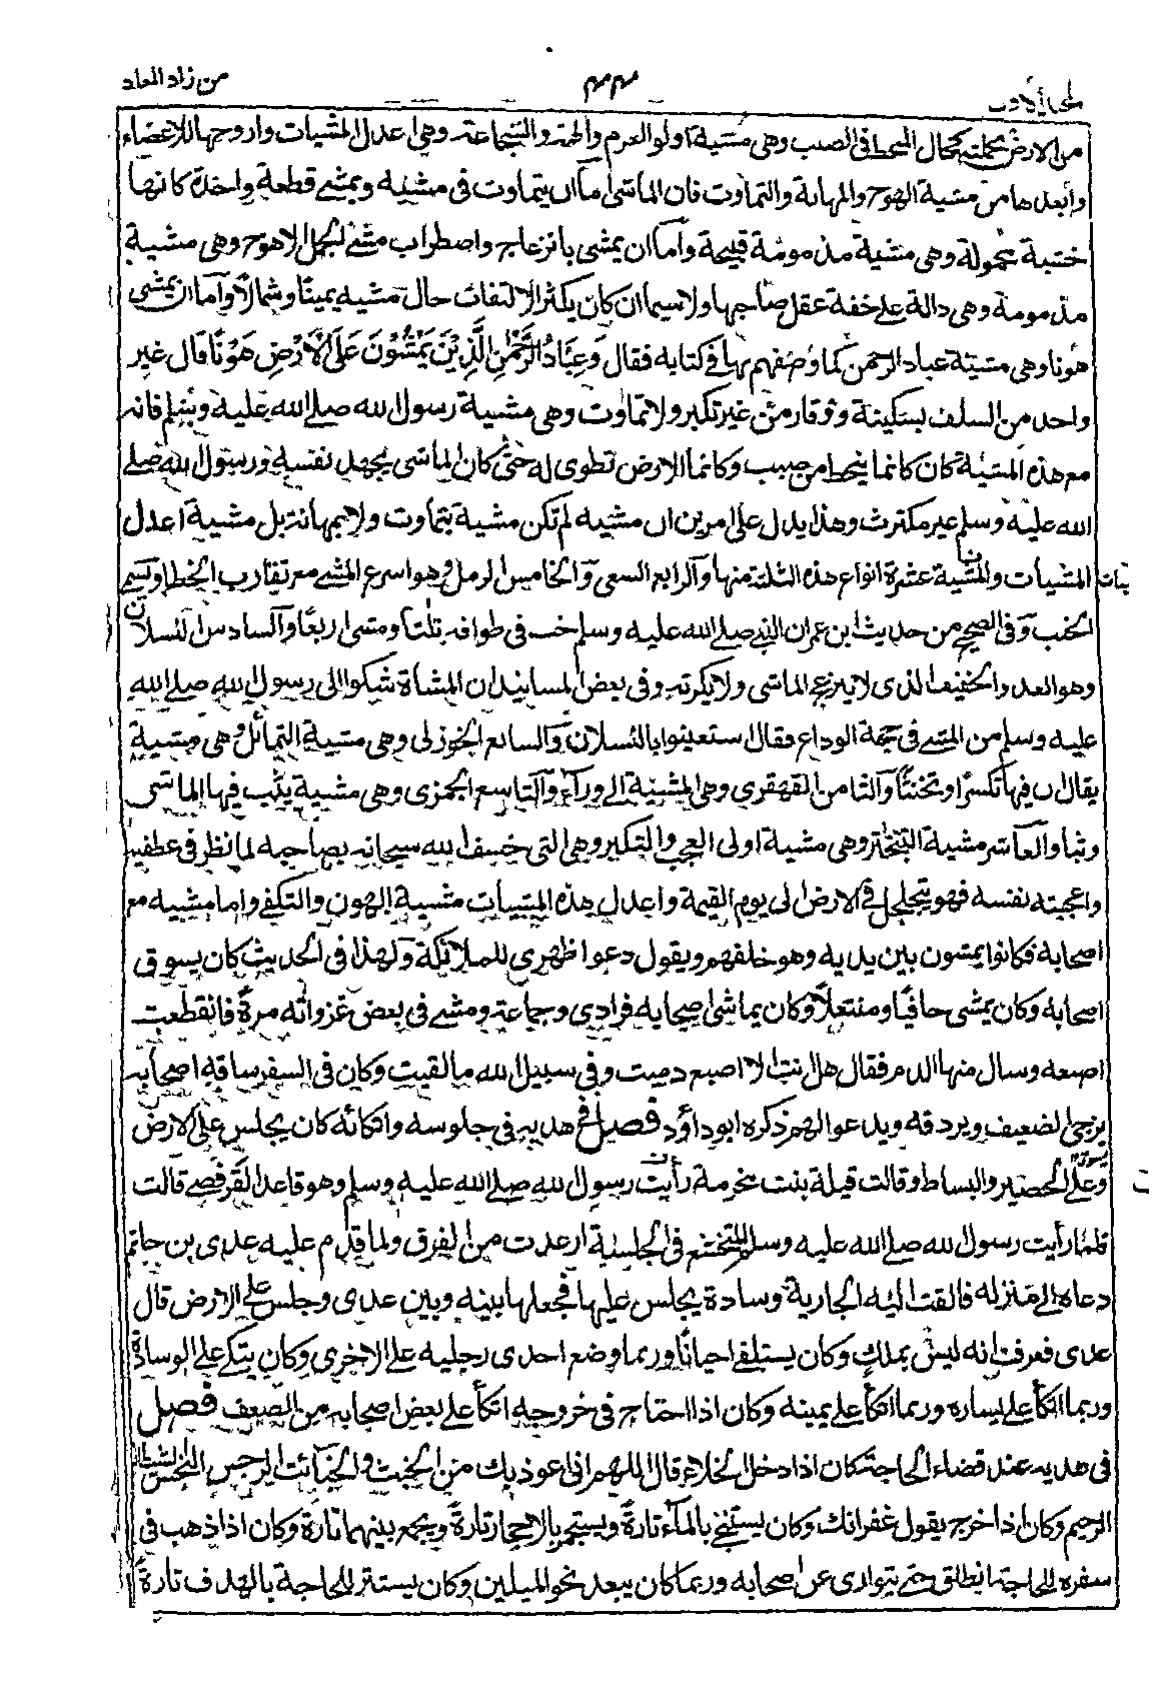 من زاد المعاد
٤٣ المجلد الأول
من الارض بجملته كحال المنحط فى الصبب وهى مشية اولو العزم والهمة والشجاعة وهى اعدل المشيات واروحها للاعضاء
وابعدها من مشية الهوج والمهانة والتماوت فان الماشى اما ان يتماوت فى مشيه ويمشى قطعة واحدة كانها
خشبة محمولة وهى مشية مذمومة قبيحة وأما ان يمشى بانزعاج واضطراب مشى الجمل الاهوج وهى مشية
مذمومة وهى دالة على خفة عقل صاحبها ولا سيما ان كان يكثر الالتفات حال مشيه يمينًا وشمالًا وآما ان يمشى
هونا وهى مشية عباد الرحمن كما وصفهم بها فى كتابه فقال وَعِبَادُ الرَّحْمٰنِ الَّذِيْنَ يَمْشُوْنَ عَلَى الْاَرْضِ هَوْنًا قال غير
واحد من السلف بسكينة ووقار من غير تكبر ولا تماوت وهى مشية رسول الله صلى الله عليه وسلم فانه
مع هذه المشية كان كانما ينحط من صبب وكانما الارض تطوى له حتى كان الماشى يجهد نفسه ورسول الله صلى
الله عليه وسلم غير مكترث وهذا يدل على امرين ان مشيه لم تكن مشية بتماوت ولا بمهانة بل مشية اعدل
المشيات والمشية عشرة انواع هذه الثلثة منها وآلرابع السعى وآلخامس الرمل وهو اسرع المشى مع تقارب الخطا ويسمى
الخبب وفى الصحيح من حديث ابن عمر ان النبى صلى الله عليه وسلم خب فى طوافه ثلثًا ومشى اربعًا وآلسادس النسلان
وهو العدو الخفيف الذى لا يزعج الماشى ولا يكرثه وفى بعض المسانيد ان المشاة شكوا الى رسول الله صلى الله
عليه وسلم من المشى فى حجة الوداع فقال استعينوا بالنسلان وآلسابع الخوزلى وهى مشية التمائل وهى مشية
يقال ان فيها تكسرًا وتخنثًا وآلثامن القهقرى وهى المشية الى وراء وآلتاسع الجمزى وهى مشية يثب فيها الماشى
وثبا وآلعاشر مشية التبختر وهى مشية اولى العجب والتكبر وهى التى خسف الله سبحانه بصاحبه لما نظر فى عطفيه
واعجبته نفسه فهو يتجلجل فى الارض الى يوم القيمة واعدل هذه المشيات مشية الهون والتكفى واما مشيه مع
اصحابه فكانوا يمشون بين يديه وهو خلفهم ويقول دعوا ظهرى للملائكة ولهذا فى الحديث كان يسوق
اصحابه وكان يمشى حافيًا ومنتعلًا وكان يماشى اصحابه فرادى وجماعة ومشى فى بعض غزواته مرةً فانقطعت
اصبعه وسال منها الدم فقال هل انت الا اصبع دميت وفى سبيل الله ما لقيت وكان فى السفر ساقة اصحابه
يزجى الضعيف ويردفه ويدعو لهم ذكره ابو داؤد فصل فى هديه فى جلوسه واتكائه كان يجلس على الارض
وعلى الحصير والبساط وقالت قيلة بنت مخرمة رأيت رسول الله صلى الله عليه وسلم وهو قاعد القرفصى قالت
فلما رأيت رسول الله صلى الله عليه وسلم المتخشع فى الجلسة ارعدت من الفرق ولما قدم عليه عدى بن حاتم
دعاه الى منزله فالقت اليه الجارية وسادة يجلس عليها فجعلها بينه وبين عدى وجلس على الارض قال
عدى فعرفت انه ليس بملك وكان يستلقى احيانًا وربما وضع احدى رجليه على الاخرى وكان يتكئ على الوسادة
وربما اتكأ على يساره وربما اتكأ على يمينه وكان اذا احتاج فى خروجه اتكأ على بعض اصحابه من الضعف فصل
فى هديه عند قضاء الحاجة كان اذا دخل الخلاء قال اللهم انى اعوذ بك من الخبث والخبائث الرجس النجس الشيطان
الرجيم وكان اذا خرج يقول غفرانك وكان يستنجى بالماء تارةً ويستجمر بالاحجار تارةً ويجمع بينهما تارة وكان اذا ذهب فى
سفره للحاجة انطلق حتى يتوارى عن اصحابه وربما كان يبعد نحو الميلين وكان يستتر للحاجة بالهدف تارةً